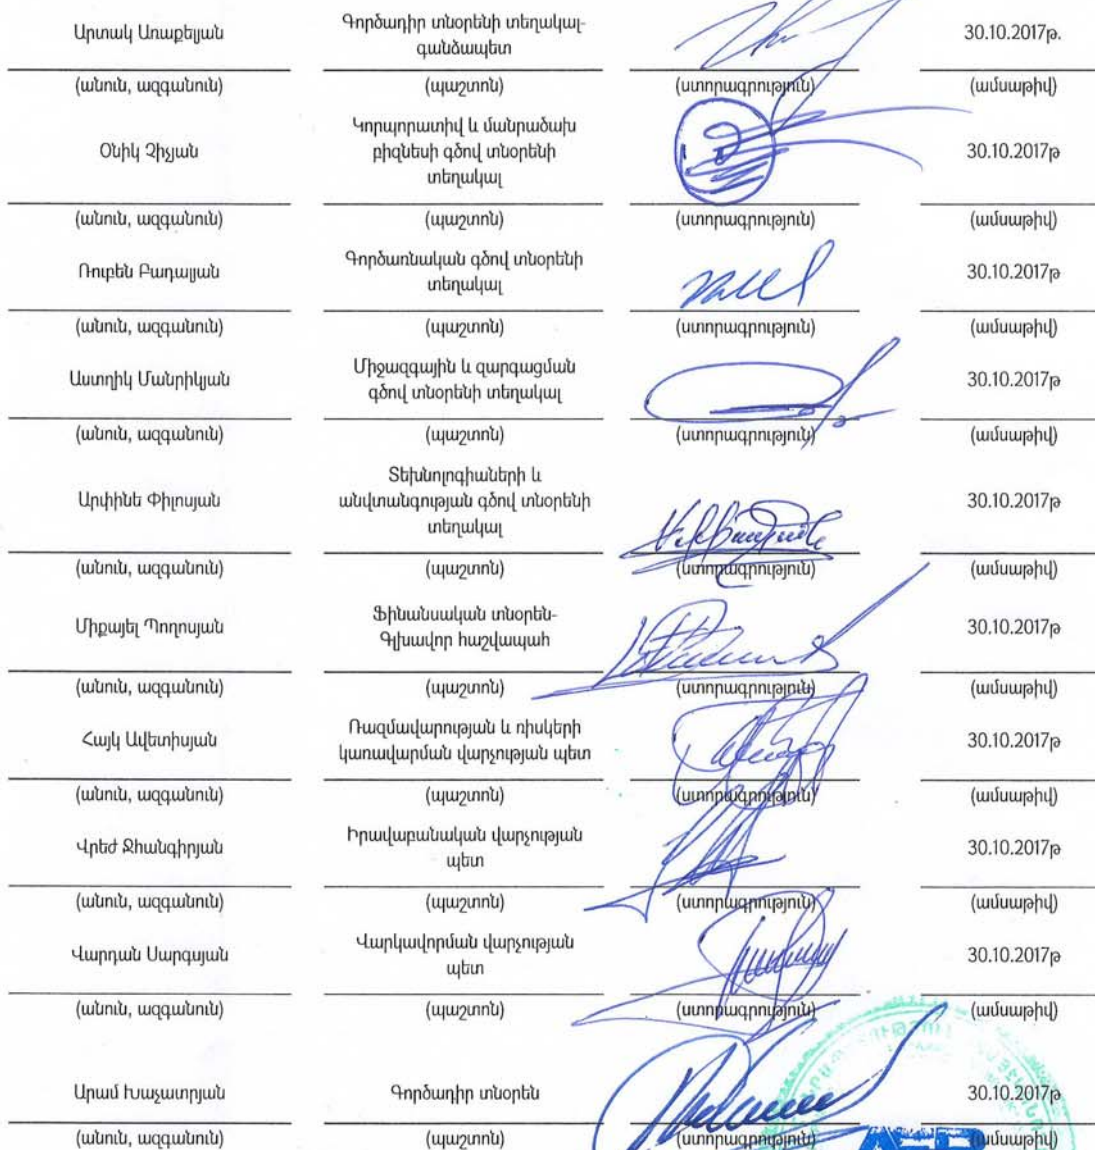 Արտակ Առաքելյան
Գործադիր տնօրենի տեղակալ-
գանձապետ
30.10.2017թ.
(անուն, ազգանուն) (պաշտոն) (ստորագրություն) (ամսաթիվ)
Օնիկ Չիչյան
Կորպորատիվ և մանրածախ
բիզնեսի գծով տնօրենի
տեղակալ
30.10.2017թ
(անուն, ազգանուն) (պաշտոն) (ստորագրություն) (ամսաթիվ)
Ռուբեն Բադալյան
Գործառնական գծով տնօրենի
տեղակալ
30.10.2017թ
(անուն, ազգանուն) (պաշտոն) (ստորագրություն) (ամսաթիվ)
Աստղիկ Մանրիկյան
Միջազգային և զարգացման
գծով տնօրենի տեղակալ
30.10.2017թ
(անուն, ազգանուն) (պաշտոն) (ստորագրություն) (ամսաթիվ)
Արփինե Փիլոսյան
Տեխնոլոգիաների և
անվտանգության գծով տնօրենի
տեղակալ
30.10.2017թ
(անուն, ազգանուն) (պաշտոն) (ստորագրություն) (ամսաթիվ)
Միքայել Պողոսյան
Ֆինանսական տնօրեն-
Գլխավոր հաշվապահ
30.10.2017թ
(անուն, ազգանուն) (պաշտոն) (ստորագրություն) (ամսաթիվ)
Հայկ Ավետիսյան
Ռազմավարության և ռիսկերի
կառավարման վարչության պետ
30.10.2017թ
(անուն, ազգանուն) (պաշտոն) (ստորագրություն) (ամսաթիվ)
Վրեժ Ջհանգիրյան
Իրավաբանական վարչության
պետ
30.10.2017թ
(անուն, ազգանուն) (պաշտոն) (ստորագրություն) (ամսաթիվ)
Վարդան Սարգսյան
Վարկավորման վարչության
պետ
30.10.2017թ
(անուն, ազգանուն) (պաշտոն) (ստորագրություն) (ամսաթիվ)
Արամ Խաչատրյան
Գործադիր տնօրեն
30.10.2017թ
(անուն, ազգանուն) (պաշտոն) (ստորագրություն) (ամսաթիվ)